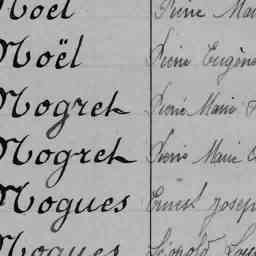 Noël Pierre Mar
Noël Pierre Eugène
Nogret Pierre Marie
Nogret Pierre Marie
Nogues Ernest Josep
Nogues Léopold